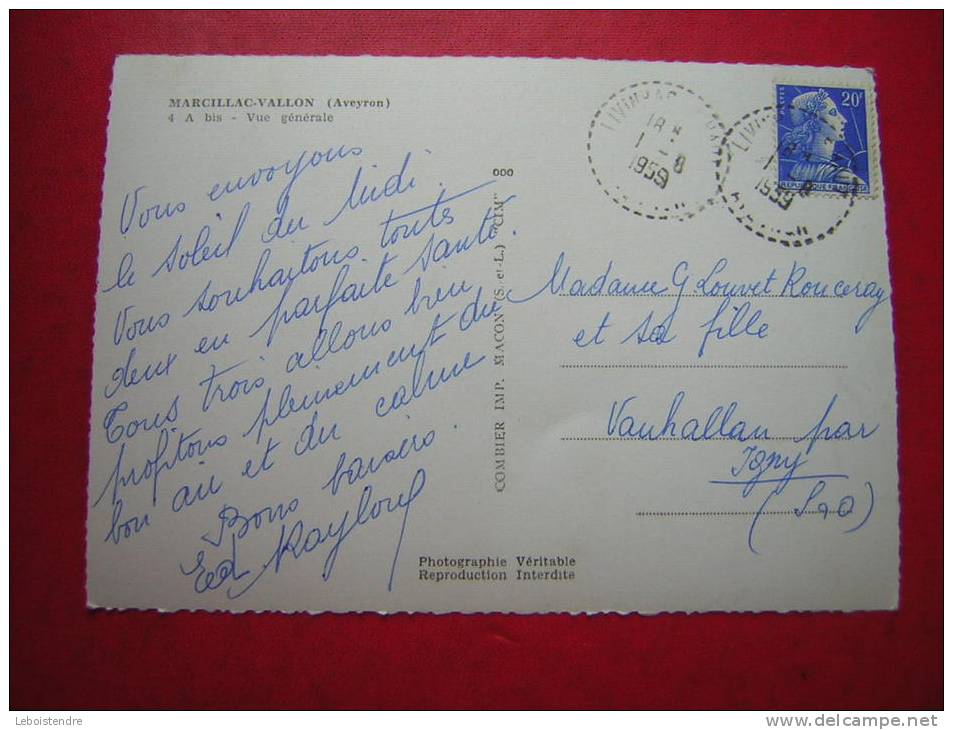 MARCILLAC-VALLON (Aveyron)
4 A bis - Vue générale
Vous envoyons
le soleil du Midi
Vous souhaitons toutes
deux en parfaite santé.
Tous trois allons bien
profitons pleinement du
bon air et du calme
Bons baisers.
Ed
000
COMBIER IMP. MACON (S.-et-L.) "CIM"
Photographie Véritable
Reproduction Interdite
LIVINHAC
18 H
1 - 8
1959
LIVIN
18 H
1959
AVEYRON
POSTES
20F
REPUBLIQUE FRANÇAISE
Madame G Louvet Ronceray
et sa fille
Vauhallan par
Igny
(S&O)
Leboistendre
www.delcampe.net